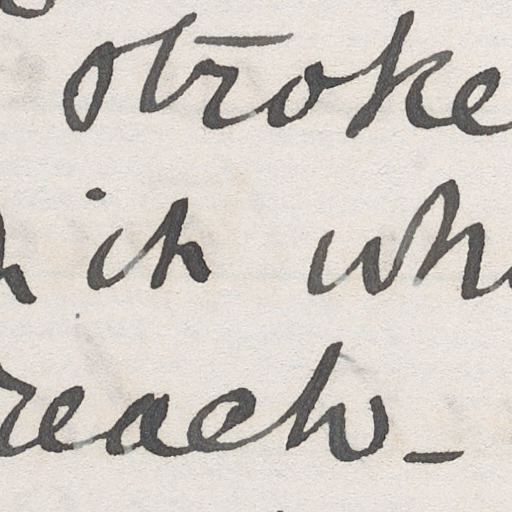 stroke
it wh
reach -